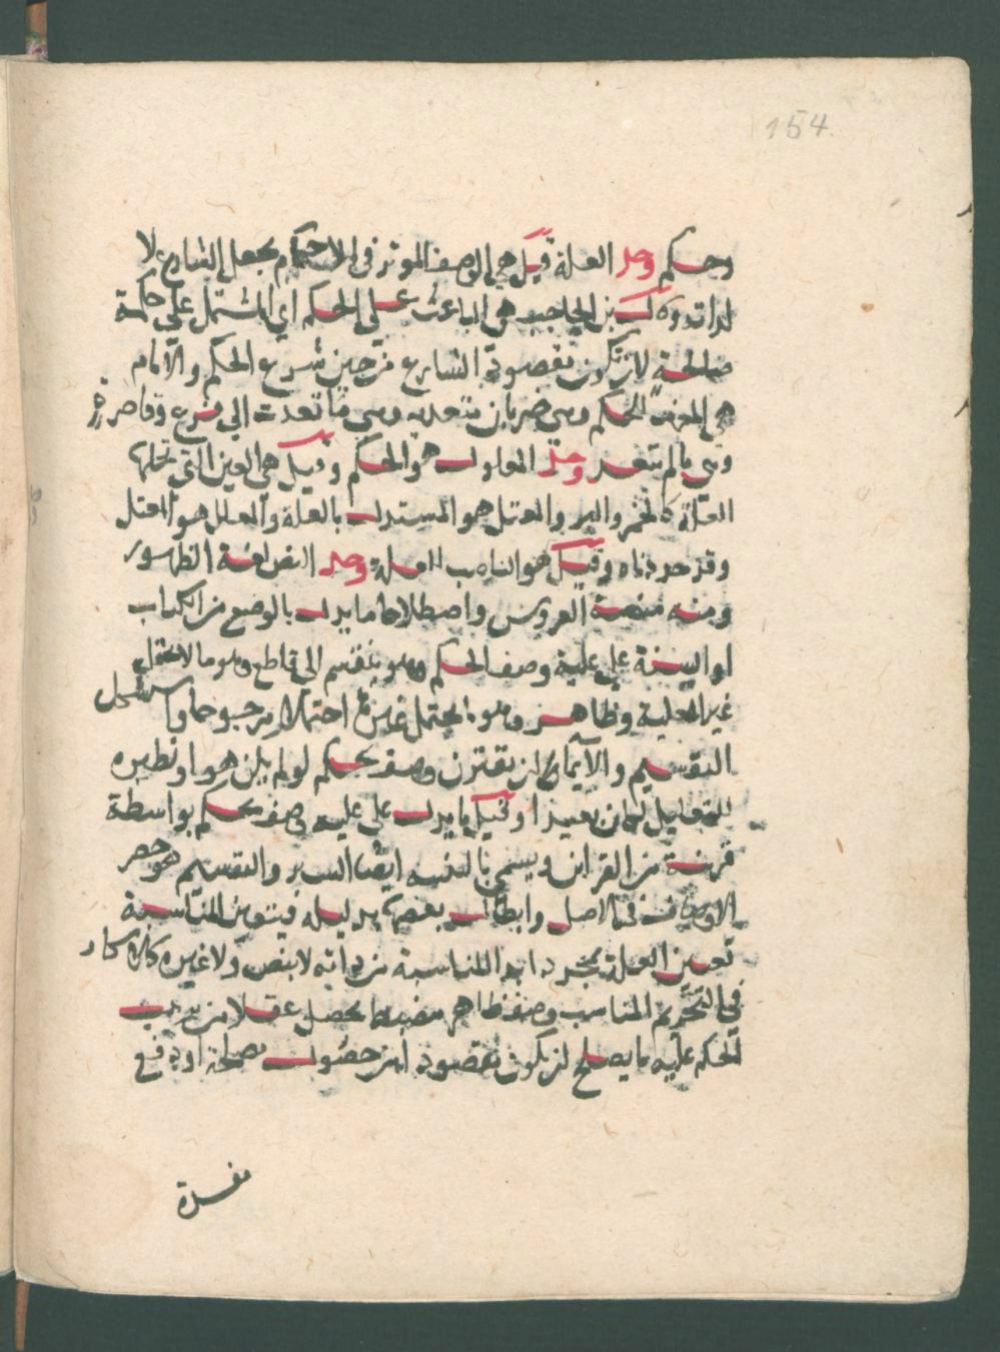 154
وحكم وحد العلة قيل هي الوصف الموثر في الاحكام بجعل الشارع لا
لذاته وقال ابن الحاجب هي الباعث على الحكم اي المشتمل على حكمة
صالحة لان تكون مقصودة الشارع من حين شرع الحكم والامام
هي المعرف للحكم وهي ضربان متعديه وهي ما تعدت الى فرع وقاصرة
وهي مالم تتعد وحد المعلول هو الحكم وقيل هي العين التي تحلها
العلة كالخمر والبر والمعتل هو المستدل بالعلة والمعلل هو المعتل
وقد حددناه وقيل هو الناصب للعلة وحد النص لغة الظهور
ومنه منصة العروس واصطلاحا ما يدل بالوضع من الكتاب
او السنة على علية وصف الحكم وهو ينقسم الى قاطع وهو ما لا يحتمل
غير العلية وظاهر وهو ما يحتمل غيرها احتمالا مرجوحا
التقسيم والايماء ان يقترن وصف بحكم لو لم يكن هو او نظيره
للتعليل لكان بعيدا وقيل ما يدل على علية وصف بحكم بواسطة
قرينة من القراين ويسمى بالتنبيه ايضا السبر والتقسيم هو حصر
الاوصاف في الاصل وابطال بعضها بدليله فيتعين المناسبة
تعيين العلة بمجرد ابدا المناسبة من ذاته لا بنص ولا غيره كالاسكار
في التحريم المناسب وصف ظاهر منضبط يحصل عقلا من ترتيب
الحكم عليه ما يصلح ان يكون مقصودا من حصول مصلحة او دفع
مفسدة